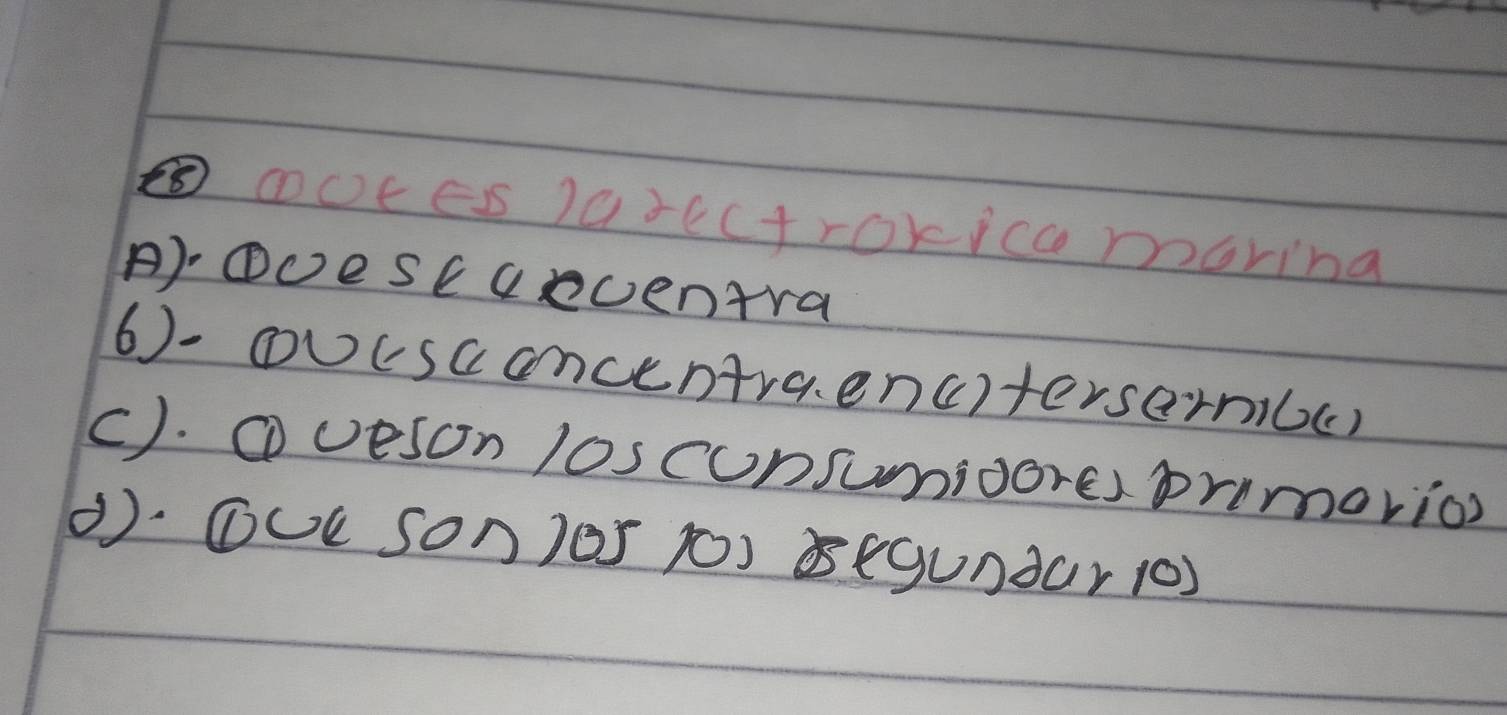 QUE ES la rectrofica marina
A). Quese ecuentra
b)- Quese encentra.en el terser nibel
c). Queson los cunsumidores primarios
d). Que son los los segundarios